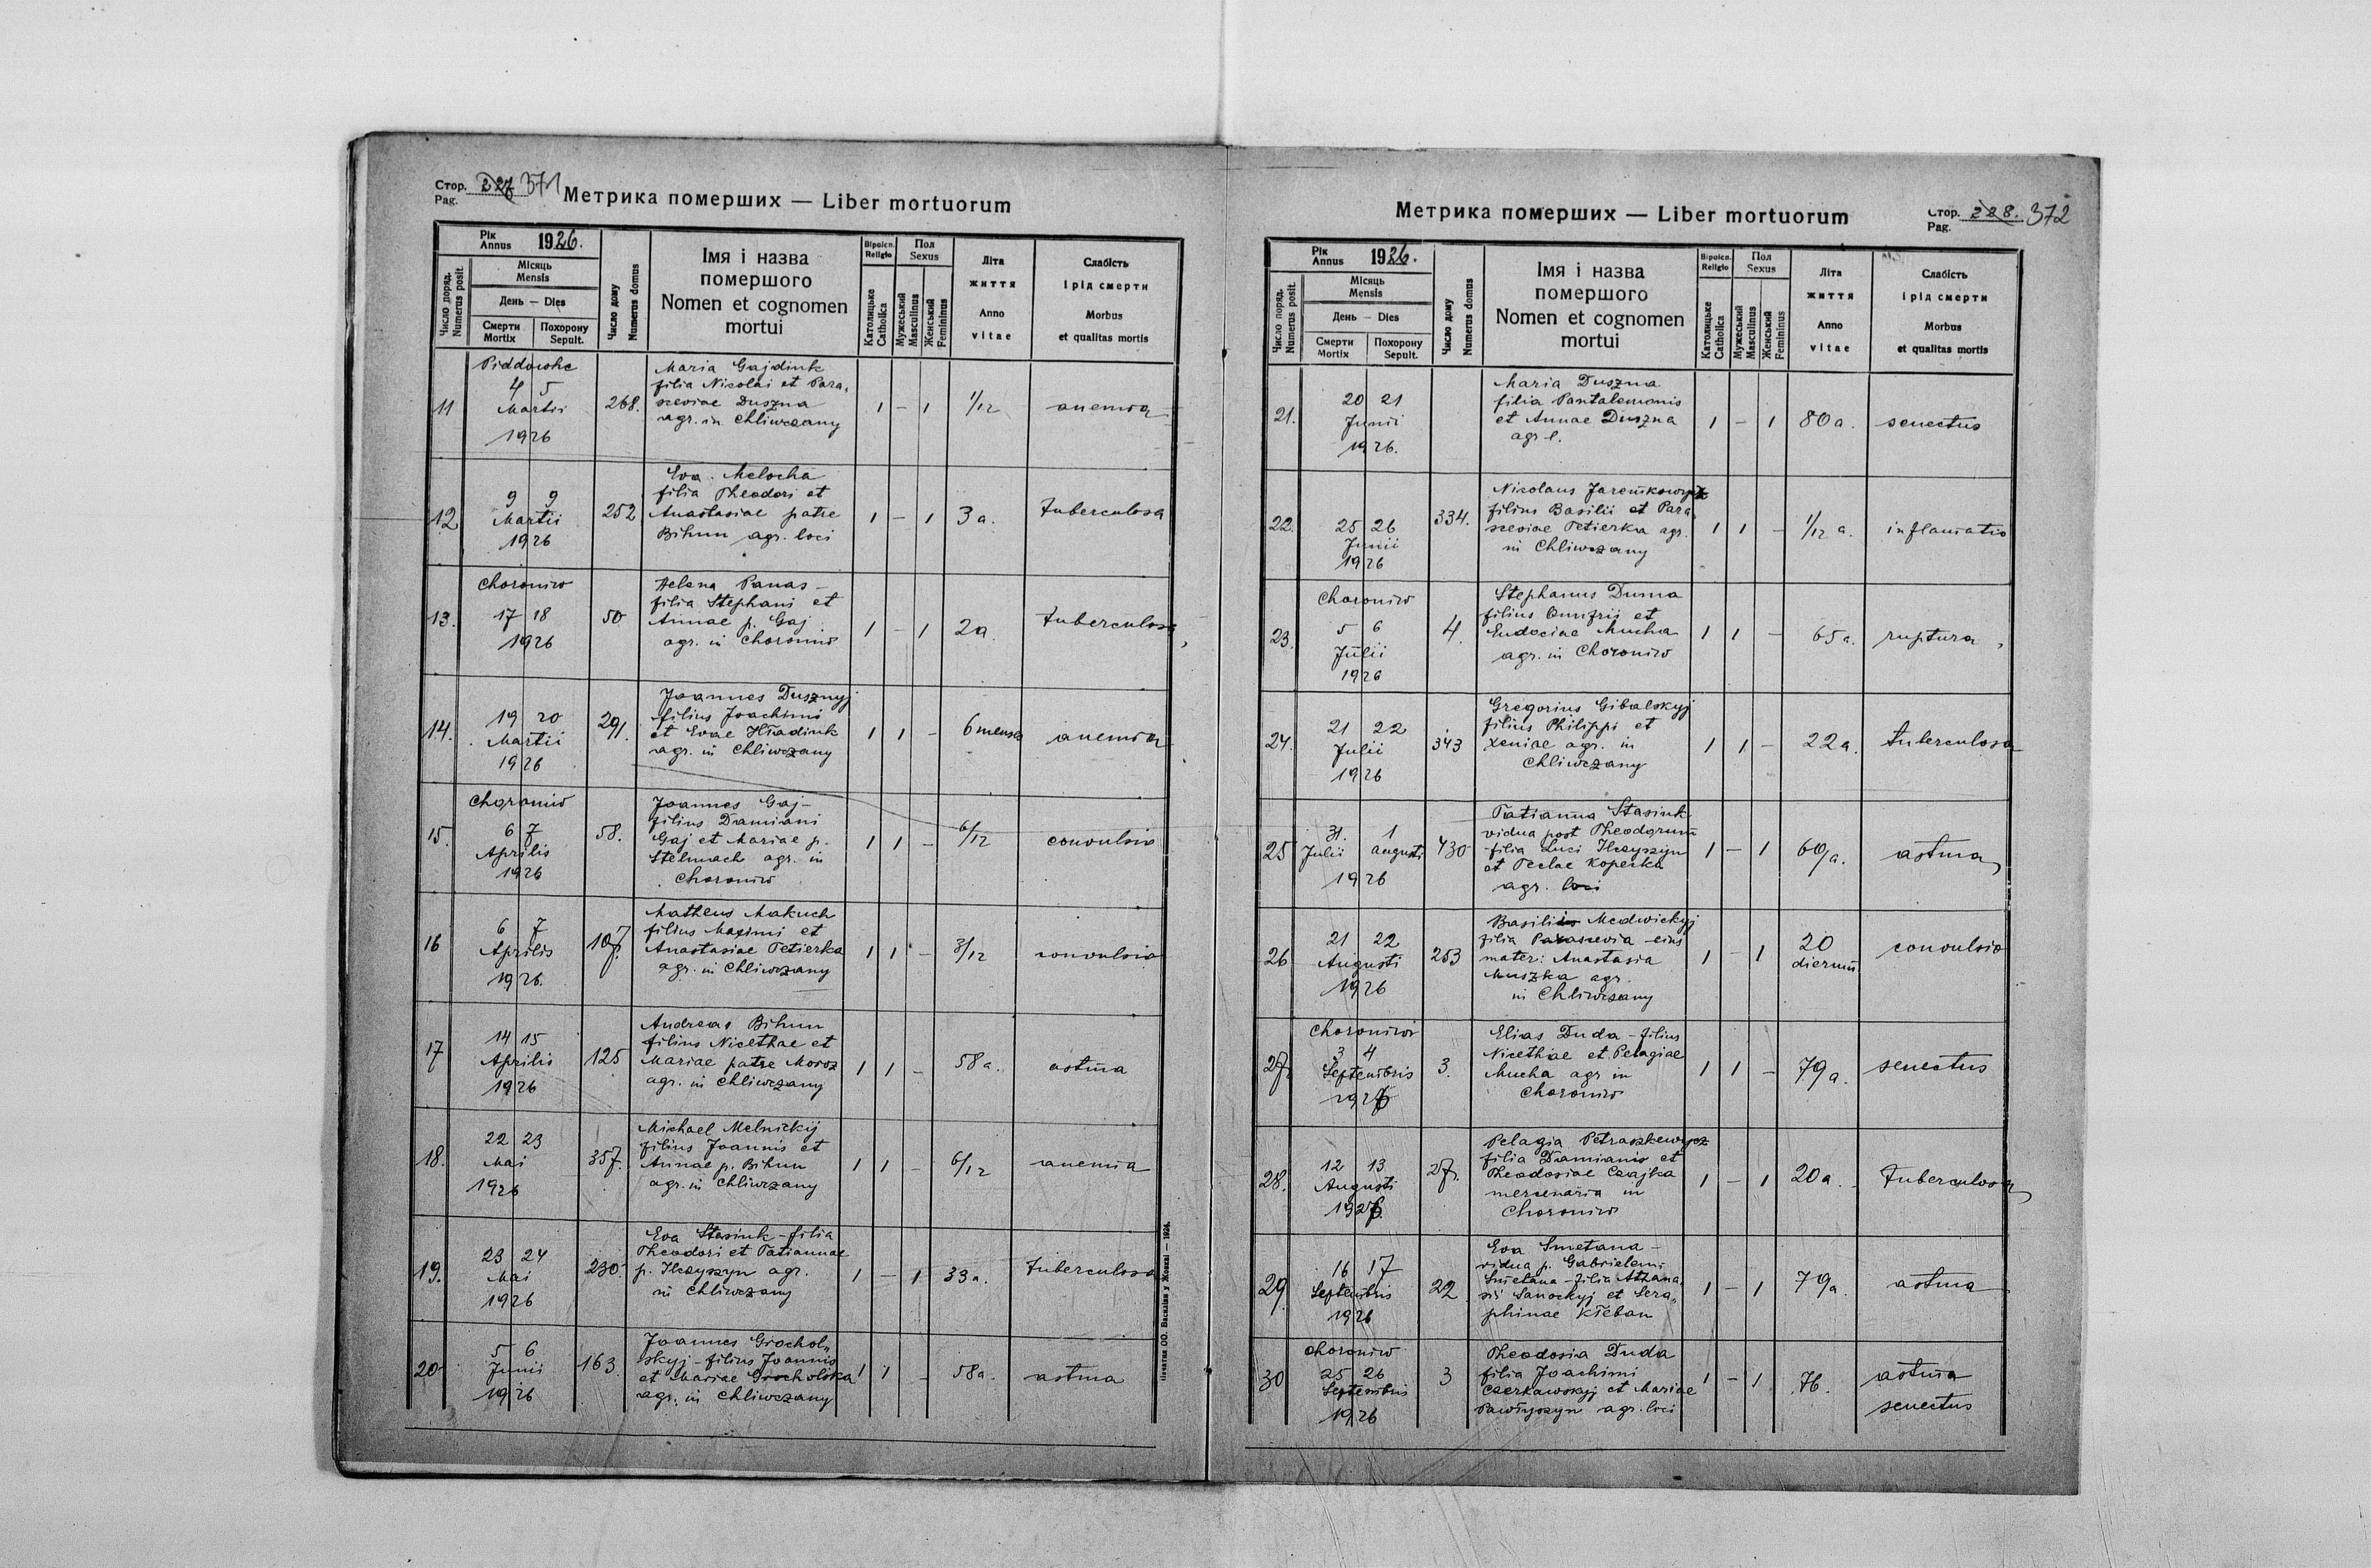 Стор. 227 371
Pag.
Метрика померших — Liber mortuorum
Рік
Annus 1926.
Число поряд.
Numerus posit.
Місяць
Mensis
День — Dies
Смерти
Mortix
Похорону
Sepult.
Число дому
Numerus domus
Імя і назва
помершого
Nomen et cognomen
mortui
Віроісп.
Religio
Католицьке
Catholica
Пол
Sexus
Мужеський
Masculinus
Женський
Femininus
Літа
життя
Anno
vitae
Слабість
і рід смерти
Morbus
et qualitas mortis
Piddowhe
11 4 5 Martii 1926 268. 1 – 1 1/12 anemia
Maria Gajdiuk
filia Nicolai et Para,
sceviae Duszna
agr. in Chliwczany
12 9 9 Martii 1926 252 1 – 1 3 a. tuberculosa
Eva Melocha
filia Theodori et
Anastasiae patre
Bihun agr. loci
Choroniw
13. 17 18 1926 50 1 – 1 2a. tuberculosa
Helena Panas –
filia Stephani et
Annae p. Gaj
agr. in Choroniw
14. 19 20 Martii 1926 291. 1 1 – 6 menses anemia
Joannes Dusznyj
filius Joachimi
et Evae Hładiuk
agr. in Chliwczany
Choroniw
15. 6 7 Aprilis 1926 58. 1 1 – 6/12 convulsio
Joannes Gaj –
filius Damiani
Gaj et Mariae p.
Stelmach agr. in
Choroniw
16 6 7 Aprilis 1926. 107. 1 1 – 3/12 convulsio
Matheus Makuch
filius Maximi et
Anastasiae Tetierka
agr. in Chliwczany
17 14 15 Aprilis 1926 125 1 1 – 58 a. astma
Andreas Bihun
filius Nicethae et
Mariae patre Moroz
agr. in Chliwczany
18. 22 23 Mai 1926 357. 1 1 – 6/12 anemia
Michael Melnickij
filius Joannis et
Annae p. Bihun
agr. in Chliwczany
19. 23 24 Mai 1926 230. 1 – 1 33a. tuberculosa
Eva Stasiuk – filia
Theodori et Tatiannae
p. Ilczyszyn agr.
in Chliwczany
20 5 6 Junii 1926 163. 1 1 – 58a. astma
Joannes Grochol„
skyj – filius Joannis
et Mariae Grocholska
agr. in Chliwczany
Печатня ОО. Василіян у Жовкві — 1924.
Метрика померших — Liber mortuorum
Стор. 228. 372
Pag.
Рік
Annus 1926.
Число поряд.
Numerus posit.
Місяць
Mensis
День — Dies
Смерти
Mortix
Похорону
Sepult.
Число дому
Numerus domus
Імя і назва
помершого
Nomen et cognomen
mortui
Віроісп.
Religio
Католицьке
Catholica
Пол
Sexus
Мужеський
Masculinus
Женський
Femininus
Літа
життя
Anno
vitae
Слабість
і рід смерти
Morbus
et qualitas mortis
21. 20 21 Junii 1926. 1 – 1 80 a. senectus
Maria Duszna
filia Pantalemonis
et Annae Duszna
agr. l.
22. 25 26 Junii 1926 334. 1 1 – 1/12 a. inflamatio
Nicolaus Jaremkowycz
filius Basilii et Para,
sceviae Tetierka agr.
in Chliwczany
Choroniw
23. 5 6 Julii 1926 4. 1 1 – 65 a. ruptura
Stephanus Duma
filius Onufrii et
Eudociae Mucha
agr. in Choroniw
24. 21 22 Julii 1926 343 1 1 – 22 a. tuberculosa
Gregorius Gibalskyj
filius Philippi et
Xeniae agr. in
Chliwczany
25 31. Julii 1 augusti 1926 430 1 – 1 60 a. astma
Tatianna Stasiuk
vidua post Theodorum
filia Luci Ilczyszyn
et Teclae Koperka
agr. loci
26 21 22 Augusti 1926 253 1 – 1 20 dierum convulsio
Basilii Medwickyj
filia Parascevia – eius
mater: Anastasia
Muszka agr.
in Chliwczany
Choroniw
27. 3 4 Septembris 1926 3. 1 1 – 79 a. senectus
Elias Duda – filius
Nicethae et Pelagiae
Mucha agr in
Choroniw
28. 12 13 Augusti 1926. 27. 1 – 1 20 a. tuberculosa
Pelagia Petraszkewycz
filia Damianis et
Theodosiae Czajka
mercenaria in
Choroniw
29. 16 17 Septembris 1926 22 1 – 1 79 a. astma
Eva Smetana –
vidua p. Gabrielem
Smetana – filia Athana,
sii Sanockyj et Sera„
phinae Kłeban
Choroniw
30 25 26 Septembris 1926 3 1 – 1 76. astma
senectus
Theodosia Duda
filia Joachimi
Czerkawskyj et Mariae
Pawłyszyn agr. loci